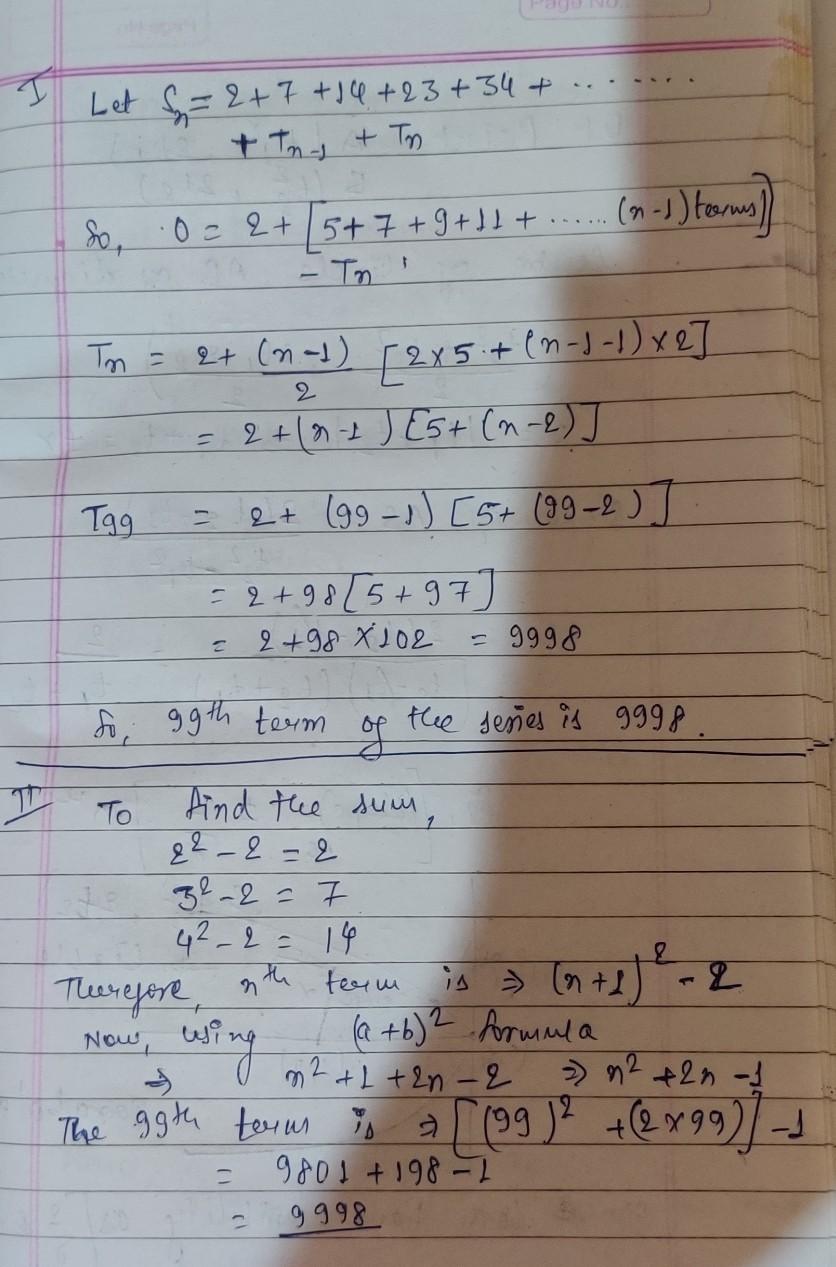 Page No.
I Let Sn = 2+7+14+23+34+ ........
+ Tn-1 + Tn
So, 0 = 2+[5+7+9+11+ ...... (n-1) terms]
- Tn
Tn = 2+ (n-1)/2 [2×5+(n-1-1)×2]
= 2+(n-1)[5+(n-2)]
T99 = 2+ (99-1) [5+ (99-2)]
= 2+98[5+97]
= 2+98×102 = 9998
So, 99th term of the series is 9998.
II To find the sum,
2² - 2 = 2
3² - 2 = 7
4² - 2 = 14
Therefore, nth term is ⇒ (n+1)² - 2
Now, using (a+b)² formula
⇒ n²+1+2n-2 ⇒ n²+2n-1
The 99th term is ⇒ [(99)² +(2×99)] -1
= 9801+198-1
= 9998